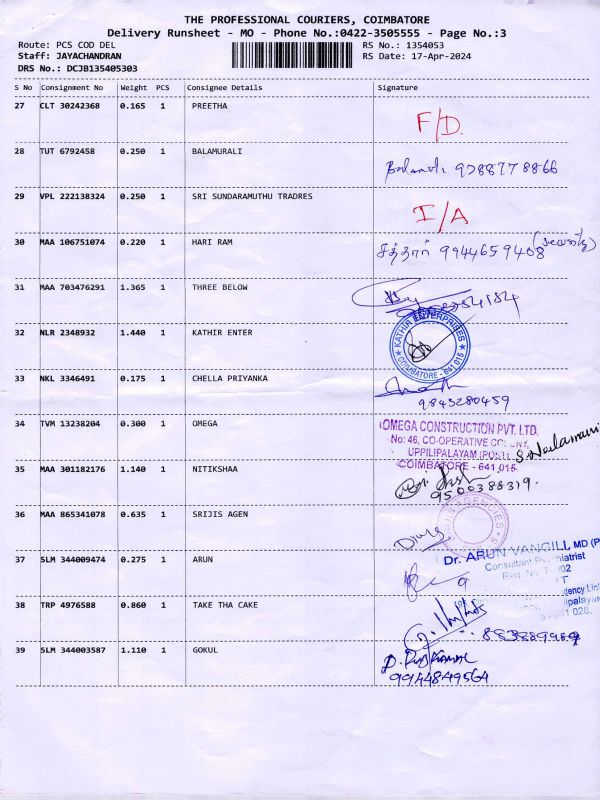 THE PROFESSIONAL COURIERS, COIMBATORE
Delivery Runsheet - MO - Phone No.:0422-3505555 - Page No.:3
Route: PCS COD DEL RS No.: 1354053
Staff: JAYACHANDRAN RS Date: 17-Apr-2024
DRS No.: DCJB135405303
S No Consignment No Weight PCS Consignee Details Signature
27 CLT 30242368 0.165 1 PREETHA
F/D.
28 TUT 6792458 0.250 1 BALAMURALI
9788778866
29 VPL 222138324 0.250 1 SRI SUNDARAMUTHU TRADRES
I/A
30 MAA 106751074 0.220 1 HARI RAM
சத்தார் 9944659408
31 MAA 703476291 1.365 1 THREE BELOW
32 NLR 2348932 1.440 1 KATHIR ENTER
KATHIR ENTERPRISES
COIMBATORE - 641 015
33 NKL 3346491 0.175 1 CHELLA PRIYANKA
9843280459
34 TVM 13238204 0.300 1 OMEGA
OMEGA CONSTRUCTION PVT. LTD.
No: 46, CO-OPERATIVE
UPPILIPALAYAM (POST),
COIMBATORE - 641 015
35 MAA 301182176 1.140 1 NITIKSHAA
9500388319.
36 MAA 865341078 0.635 1 SRIJIS AGEN
AGENCIES
37 SLM 344009474 0.275 1 ARUN
Dr. ARUN VANGILI, MD (P
Consultant Psychiatrist
38 TRP 4976588 0.860 1 TAKE THA CAKE
39 SLM 344003587 1.110 1 GOKUL
9944849564